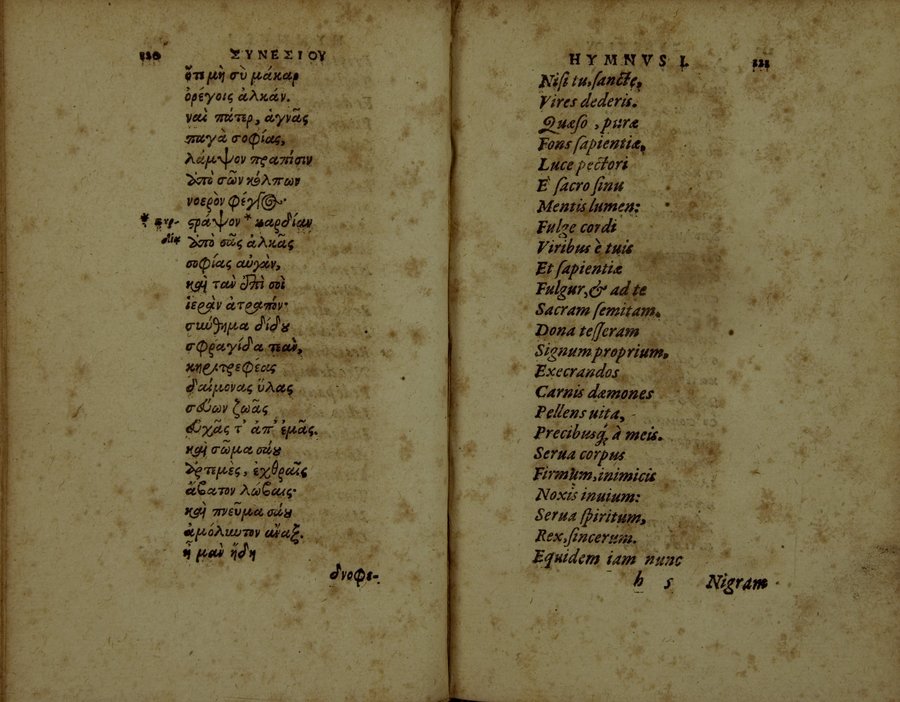 120 ΣΥΝΕΣΙΟΥ
ὅτι μὴ σὺ μάκαρ
ὀρέγοις ἀλκάν.
ναὶ πάτερ, ἁγνᾶς
παγὰ σοφίας,
λάμψον πραπίσιν
ἀπὸ σῶν κόλπων
νοερὸν φέγγος·
στράψον * καρδίαν
ἀπὸ σᾶς ἀλκᾶς
σοφίας αὐγὰν,
καὶ τὰν ἐπὶ σοὶ
ἱερὰν ἀτραπόν·
σύνθημα δίδου
σφραγίδα τεὰν,
κηριτρεφέας
δαίμονας ὕλας
σεύων ζωᾶς
εὐχᾶς τ' ἀπ' ἐμᾶς.
καὶ σῶμα σάου
ἀρτεμὲς, ἐχθραῖς
ἄβατον λώβαις·
καὶ πνεῦμα σάου
ἀμόλυντον ἄναξ.
ἦ μὰν ἤδη
δνοφε-
HYMNVS I. 121
Nisi tu, sancte,
Vires dederis.
Quæso, puræ
Fons sapientiæ,
Luce pectori
E sacro sinu
Mentis lumen:
Fulge cordi
Viribus è tuis
Et sapientiæ
Fulgur, & ad te
Sacram semitam.
Dona tesseram
Signum proprium,
Execrandos
Carnis dæmones
Pellens uita,
Precibusq́; à meis.
Serua corpus
Firmum, inimicis
Noxis inuium:
Serua spiritum,
Rex, sincerum.
Equidem iam nunc
h 5 Nigram